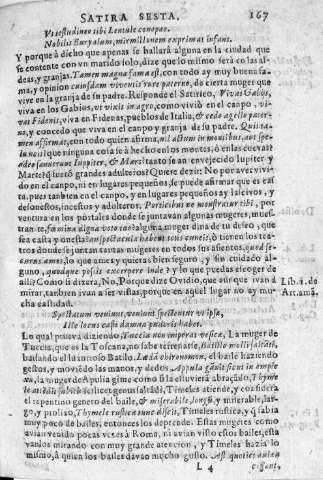 SATIRA SESTA. 167
Vt testudineo tibi Lentule conopeo.
Nobilis Euryalum, mirmillonem exprimat infans.
Y porque à dicho que apenas se hallará alguna en la ciudad que
se contente con vn marido solo, dize que lo mismo será en las al-
deas, y granjas. Tamen magna fama est, con todo ay muy buena fa-
ma, y opinion cuiusdam viuentis rure paterno, de cierta muger que
viue en la granja de su padre. Responde el Satirico, Viuat Gabijs,
viua en los Gabios, vt vixit in agro, como viuió en el canpo, vi-
uat Fidenis, viua en Fidenas, pueblos de Italia, & cedo agello pater-
no, y concedo que viua en el canpo y granja de su padre. Quis ta-
men affirmat, con todo quien afirma, nil actum in montibus, aut spe-
luncis? que ninguna cosa se à hecho en los montes, ò en las cueuas?
adeo senuerunt Iupiter, & Mars? tanto se an enuejecido Iupiter y
Marte? que
do en el canpo, ni en lugares pequeños, se puede afirmar que es cas
ta, pues tanbien en el canpo, y en lugares pequeños ay
desonestos, incestos y adulteros. Porticibus ne monstratur tibi, por
ventura en los portales donde se juntauan algunas mugeres, mues-
tran te, fæmina digna voto tuo? alguna muger dina de tu deseo, que
sea casta y onesta? spectacula habent totis cuneis, ò tienen los tea-
tros donde se juntan tantas mugeres en todos sus asientos, quod se-
curus ames, lo que ames y quieras bien seguro, y sin cuidado al-
guno, quodque possis excerpere inde? y lo que puedas escoger de
alli? Como si dixera, No, Porque dize Ouidio, que aunque ivan à
mirar, tanbien ivan à ser vistas, porque en aquel lugar no ay mu-
cha castidad.
Lib. 1. de
Art. amã.
Spectatum veniunt, veniunt spectentur vt ipsæ,
Ille locus casti damna pudoris habet.
Lo qual prueua diziendo, Tuccia non imperat vesicæ, La muger de
Tuccia, que es la Toscana, no sabe refrenarse, Batillo molli saltante,
bailando el luxurioso Batilo, Ledã chironomon, el baile haziendo
gestos, y mouiẽdo las manos, y dedos, Appula gannit sicut in ample-
xu, la muger de Apulia gime como si la estuuiera abraçado,
attẽdit, Timeles atiende, y considera
el repentino genero del baile, & miserabile, longũ, y miserable, lar-
go, y prolixo, Thymele rustica tunc discit, Timeles rustica, y q̃ sabia
muy poco de bailes, entonces los deprende. Estas mugeres como
auian venido pocas vezes à Roma, ni auian visto estos bailes, esta
uanlos mirando con muy grande atencion, y Timeles hazia lo
mismo, à quien los bailes dauan mucho gusto. Ast quoties aulæa
L 4